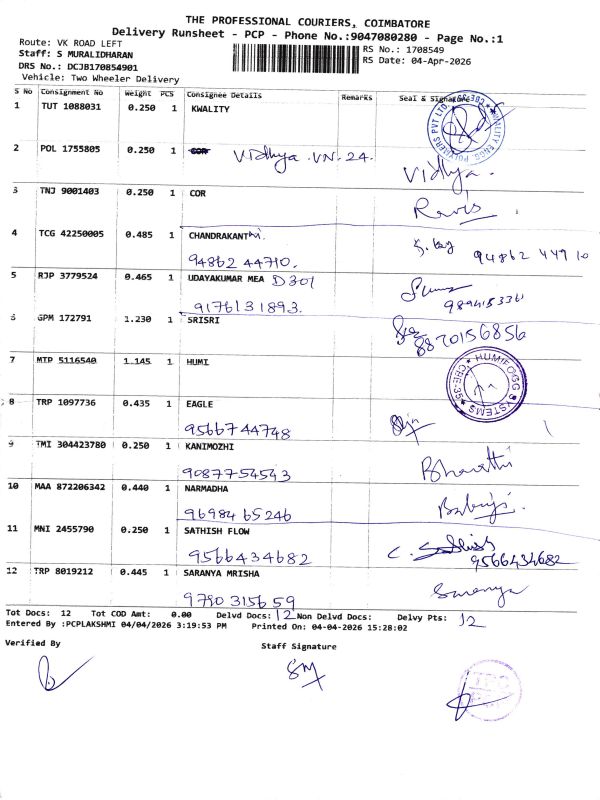 THE PROFESSIONAL COURIERS, COIMBATORE
Delivery Runsheet - PCP - Phone No.:9047080280 - Page No.:1
Route: VK ROAD LEFT
RS No.: 1708549
Staff: S MURALIDHARAN
RS Date: 04-Apr-2026
DRS No.: DCJB170854901
Vehicle: Two Wheeler Delivery
S No Consignment No Weight PCS Consignee Details Remarks Seal & Signature
1 TUT 1088031 0.250 1 KWALITY
2 POL 1755805 0.250 1 COR Vidhya .VN. 24.
Vidhya.
3 TNJ 9001403 0.250 1 COR
Ravis
4 TCG 42250005 0.485 1 CHANDRAKANThi.
94862 44710.
94862 44710
5 RJP 3779524 0.465 1 UDAYAKUMAR MEA D301
9176131893.
6 GPM 172791 1.230 1 SRISRI
8870156856
7 MTP 5116540 1.145 1 HUMI
HUMIFOGG SYSTEMS CBE-35
8 TRP 1097736 0.435 1 EAGLE
9566744748
9 TMI 304423780 0.250 1 KANIMOZHI
9087754543
Bharathi
10 MAA 872206342 0.440 1 NARMADHA
96984 65246
11 MNI 2455790 0.250 1 SATHISH FLOW
9566434682
9566434682
12 TRP 8019212 0.445 1 SARANYA MRISHA
9790315659
Saranya
Tot Docs: 12 Tot COD Amt: 0.00 Delvd Docs: 12 Non Delvd Docs: Delvy Pts: 12
Entered By :PCPLAKSHMI 04/04/2026 3:19:53 PM Printed On: 04-04-2026 15:28:02
Verified By Staff Signature